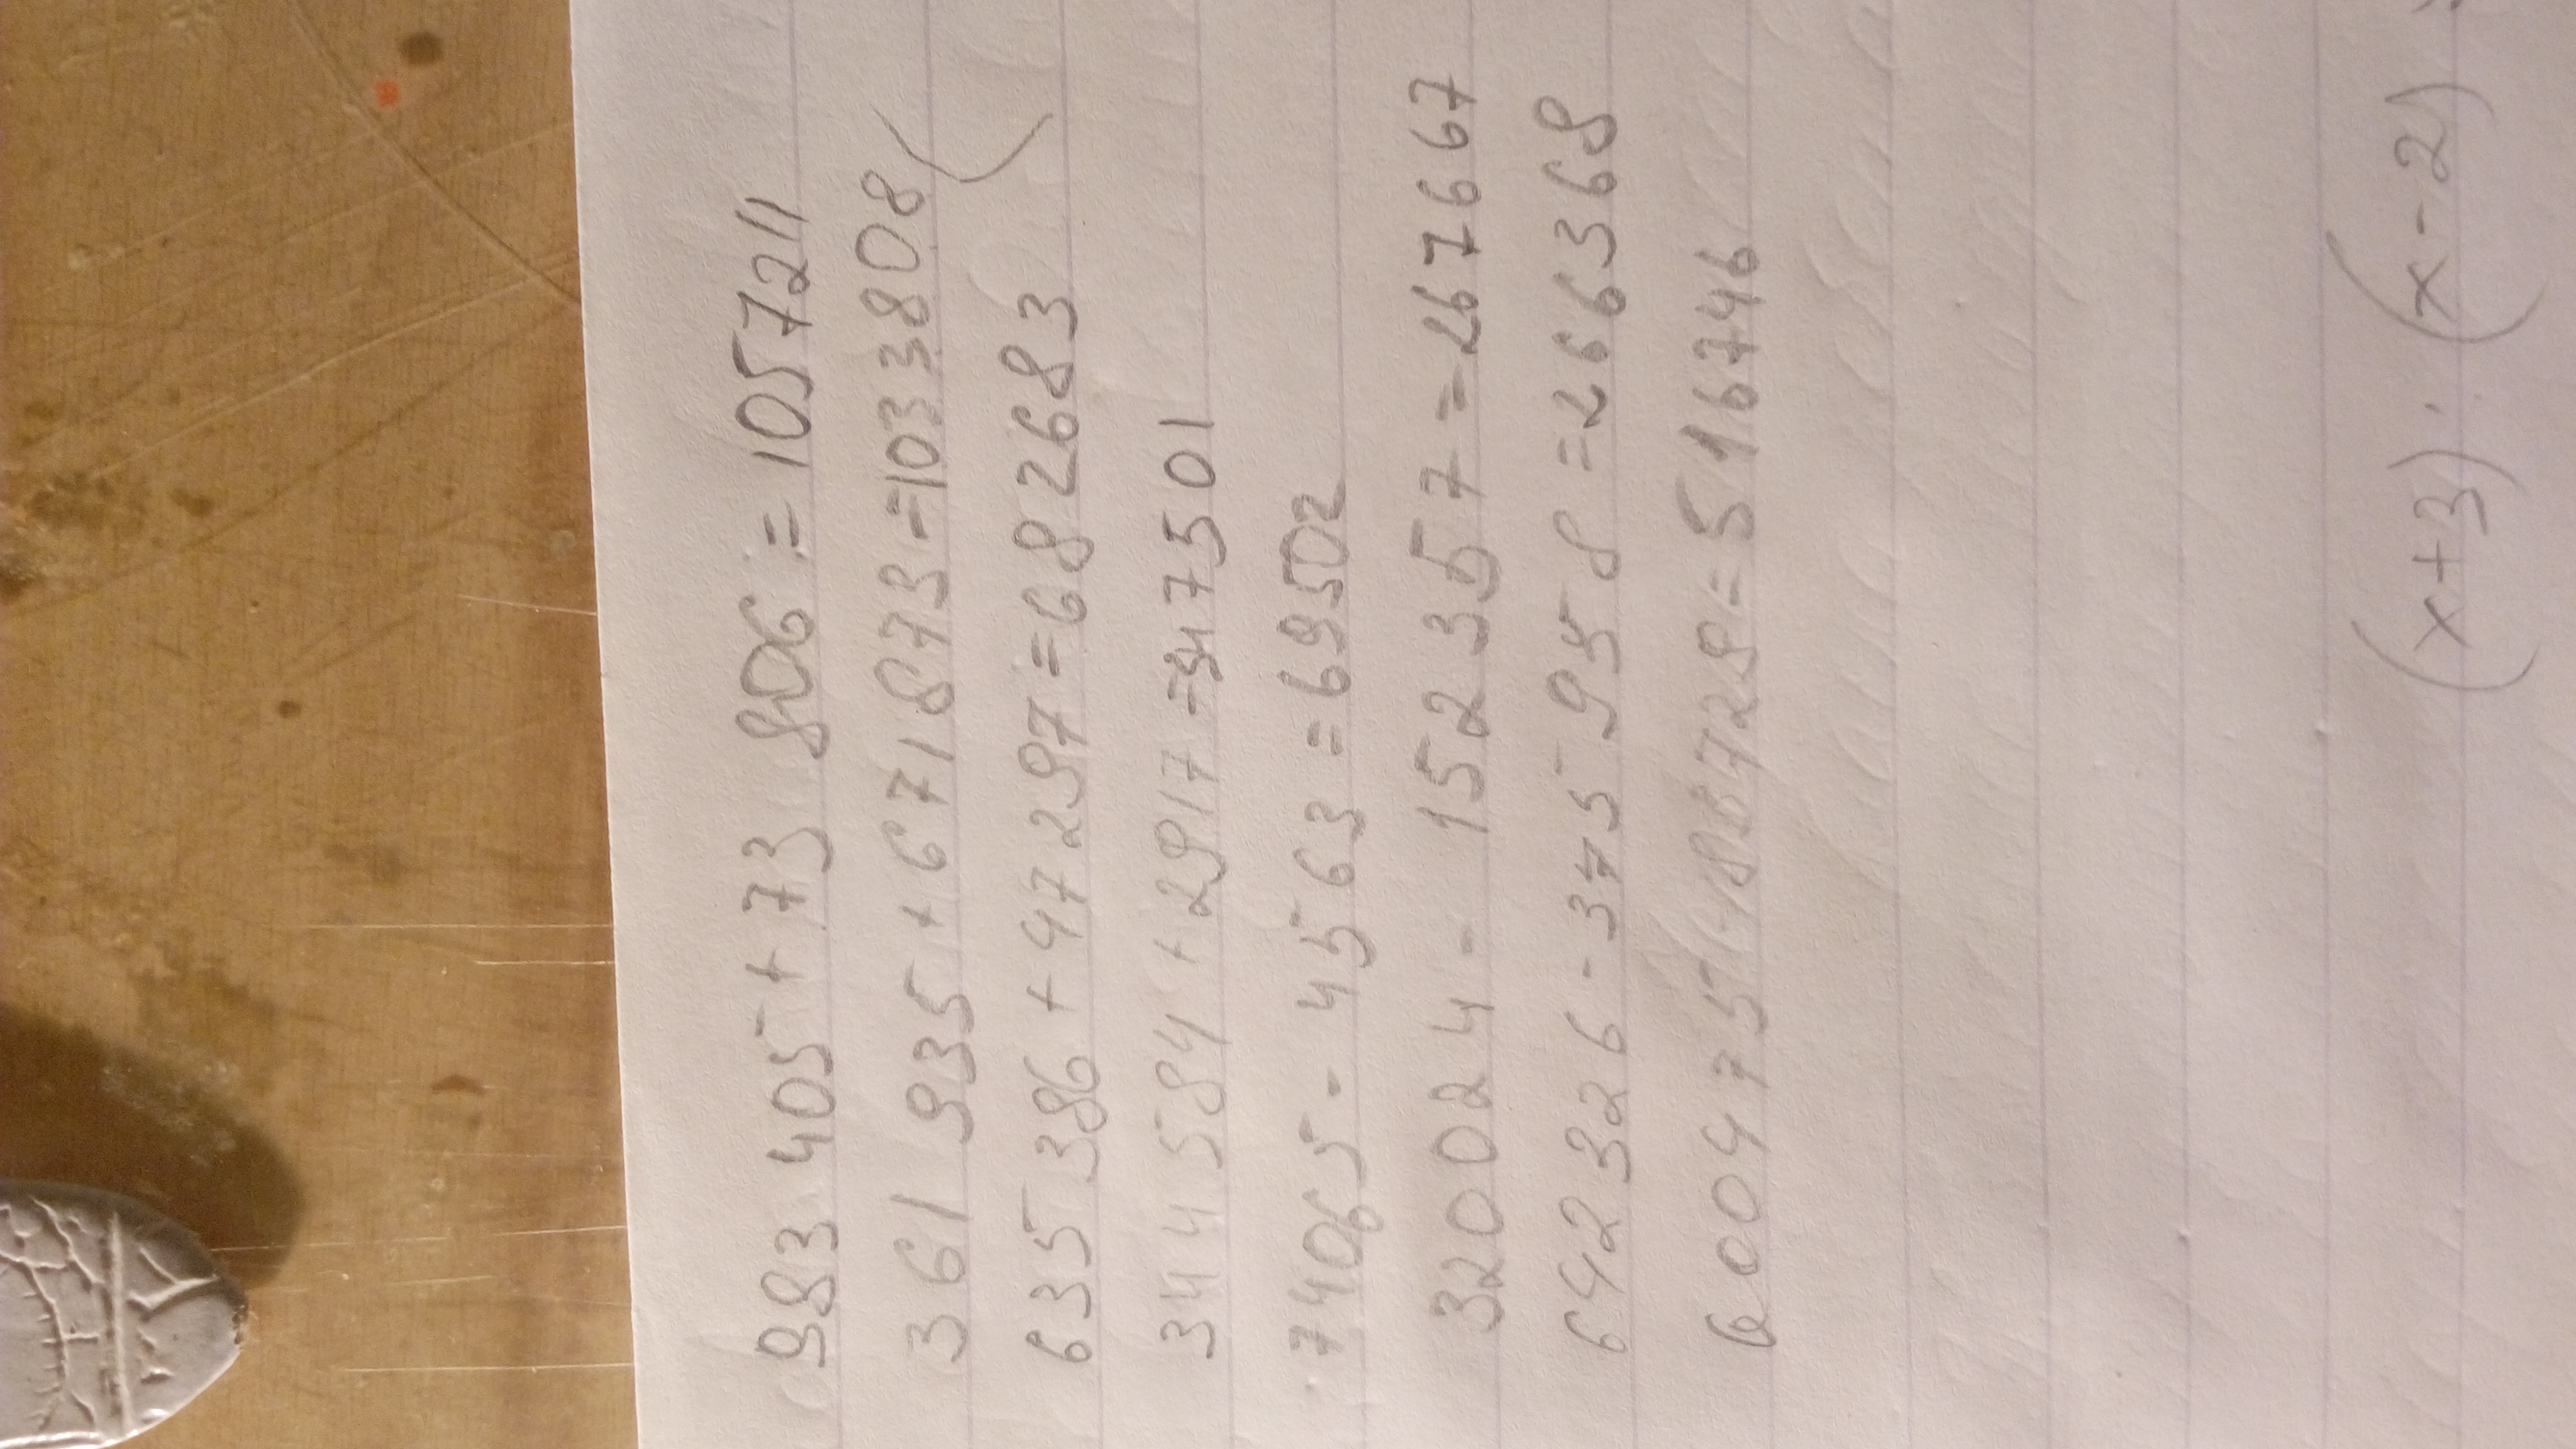 983 405 + 73 806 = 1057211
361 935 + 671 873 = 1033808
635 386 + 47 297 = 682683
344 584 + 2917 = 347501
74065 - 4563 = 69502
320024 - 152357 = 167667
642 326 - 375 958 = 266368
600475 - 88729 = 516746
(x+3) · (x-2)